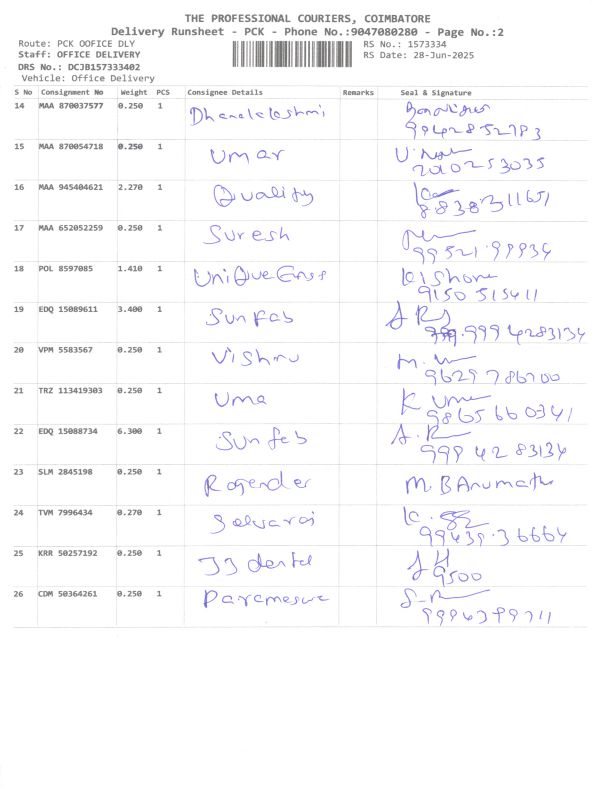 THE PROFESSIONAL COURIERS, COIMBATORE
Delivery Runsheet - PCK - Phone No.:9047080280 - Page No.:2
Route: PCK OOFICE DLY RS No.: 1573334
Staff: OFFICE DELIVERY RS Date: 28-Jun-2025
DRS No.: DCJB157333402
Vehicle: Office Delivery
S No Consignment No Weight PCS Consignee Details Remarks Seal & Signature
14 MAA 870037577 0.250 1 Dhanalakshmi
9942852783
15 MAA 870054718 0.250 1 Umar
16 MAA 945404621 2.270 1 Quality
17 MAA 652052259 0.250 1 Suresh
18 POL 8597085 1.410 1 Kishore
9150 515411
19 EDQ 15089611 3.400 1 Sunfab
999 4283134
20 VPM 5583567 0.250 1 Vishnu
9629786700
21 TRZ 113419303 0.250 1 Uma K Uma
9865660341
22 EDQ 15088734 6.300 1 Sunfeb
999 42 83134
23 SLM 2845198 0.250 1 Rogender M. BAnumath
24 TVM 7996434 0.270 1 Selvaraj
99439.36664
25 KRR 50257192 0.250 1 JJ dental
9500
26 CDM 50364261 0.250 1